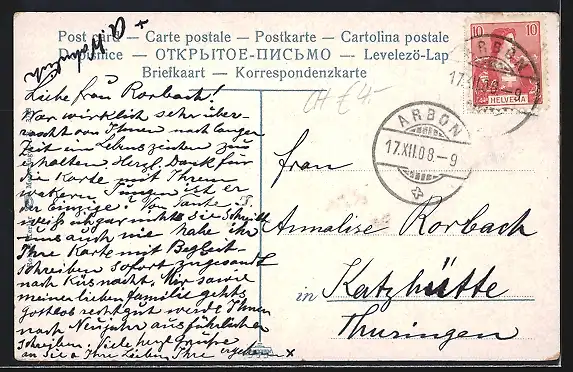 Post card — Carte postale — Postkarte — Cartolina postale
Dopisnice — ОТКРЫТОЕ-ПИСЬМО — Levelezö-Lap
Briefkaart — Korrespondenzkarte
10 10
HELVETIA
ARBON
17.XII.08-9
ARBON
17.XII.08-9
CH £ 4.-
Liebe Frau Rorbach!
War wirklich sehr über-
rascht von Ihnen nach langer
Zeit ein Lebenszeichen zu
erhalten. Herzl. Dank für
die Karte mit Ihrem
wakern Jungen ist er
der Einzige? Von Tante
weiß ich gar nichts sie schreibt
uns auch nie habe ihr
Ihre Karte mit Begleit-
schreiben sofort zugesandt
nach Küsnacht. Wir sowie
meiner lieben Familie gehts
gottlob recht gut werde Ihnen
nach Neujahr ausführlicher
schreiben. Viele herzl. Grüsse
an Sie & Ihre Lieben Ihre ergebene x
Frau
Annalise Rorbach
in Katzhütte
Thuringen